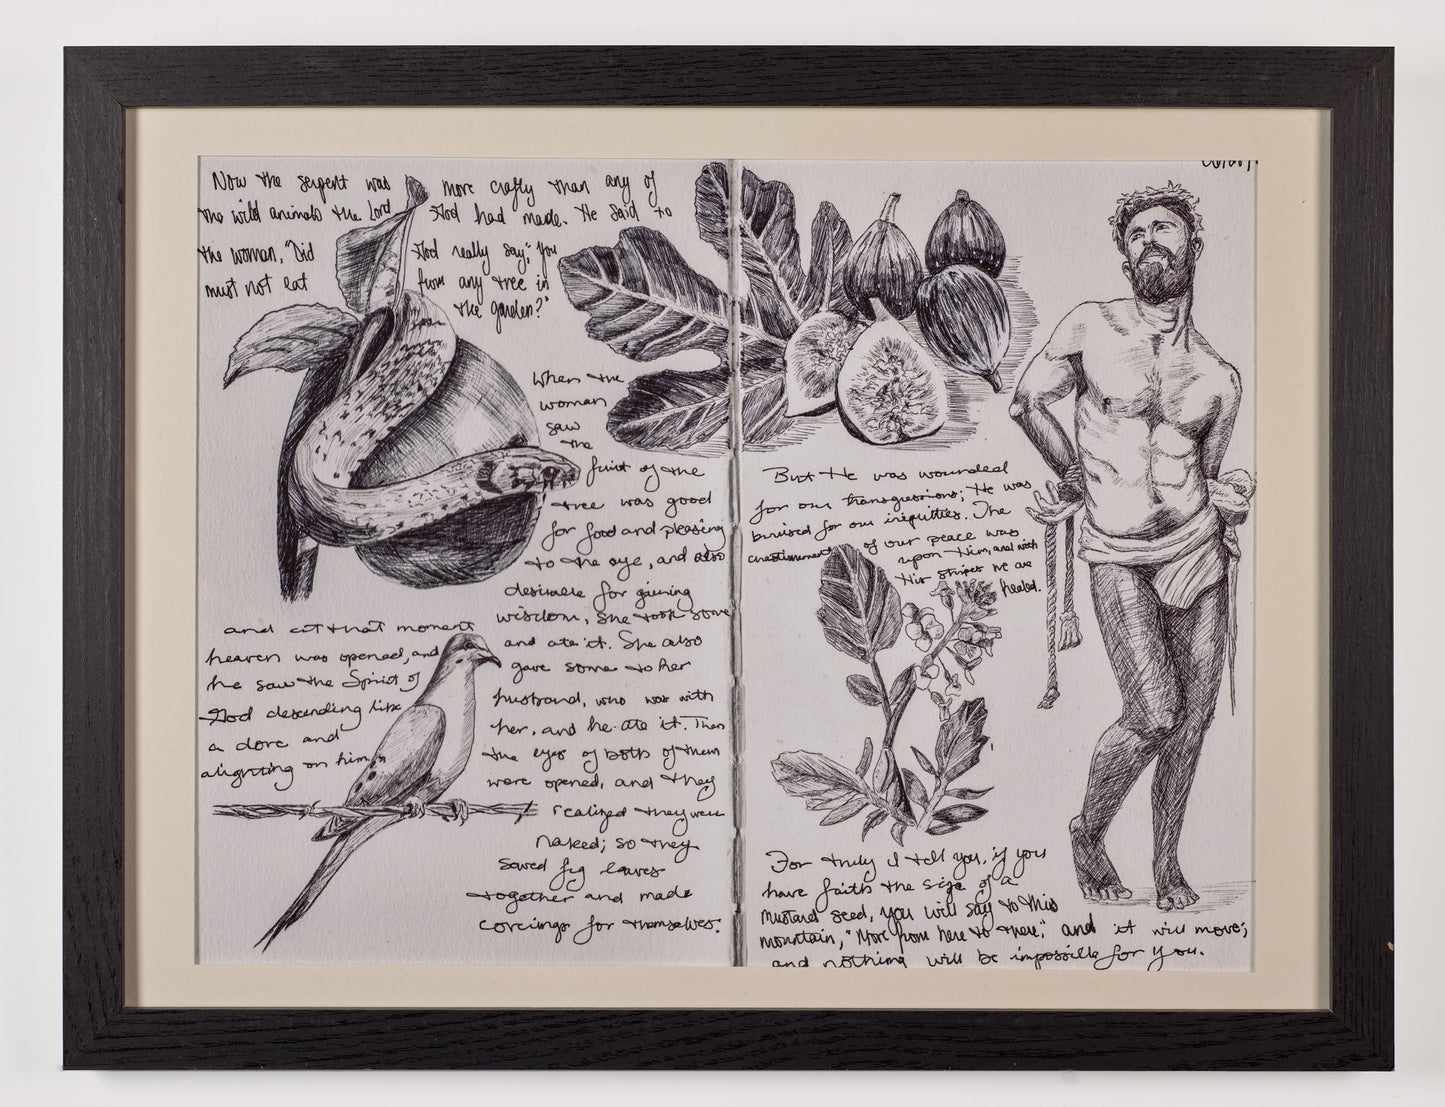 Now the serpent was more crafty than any of
the wild animals the Lord God had made. He said to
the woman, "Did God really say, "you
must not eat from any tree in
the garden?"
When the
woman
saw
the
fruit of the
tree was good
for food and pleasing
to the eye, and also
desirable for gaining
wisdom, she took some
and ate it. She also
gave some to her
husband, who was with
her, and he ate it. Then
the eyes of both of them
were opened, and they
realized they were
naked; so they
sewed fig leaves
together and made
coverings for themselves.
and at that moment
heaven was opened, and
he saw the Spirit of
God descending like
a dove and
alighting on him.
But He was wounded
for our transgressions; He was
bruised for our iniquities. The
chastisement of our peace was
upon Him, and with
His stripes we are
healed.
For truly I tell you, if you
have faith the size of a
mustard seed, you will say to this
mountain, "Move from here to there," and it will move;
and nothing will be impossible for you.